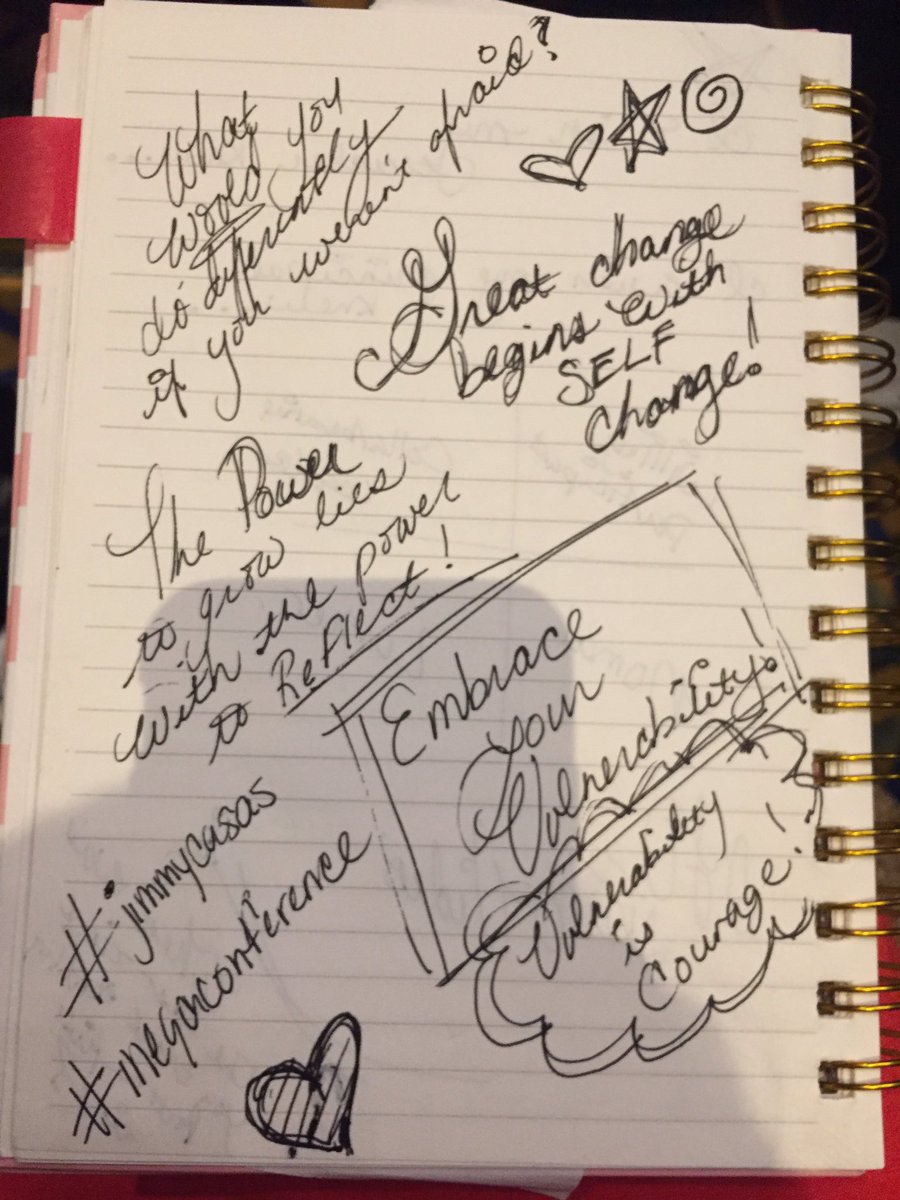 What
would you
do differently
if you weren't afraid?
Great change
begins with
SELF
change!
The Power
to grow lies
with the power
to Reflect!
Embrace
Your
Vulnerability!
Vulnerability
is
Courage!
#jimmycasas
#megaconference